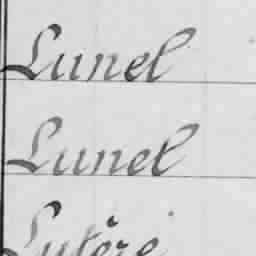 Lunel
Lunel